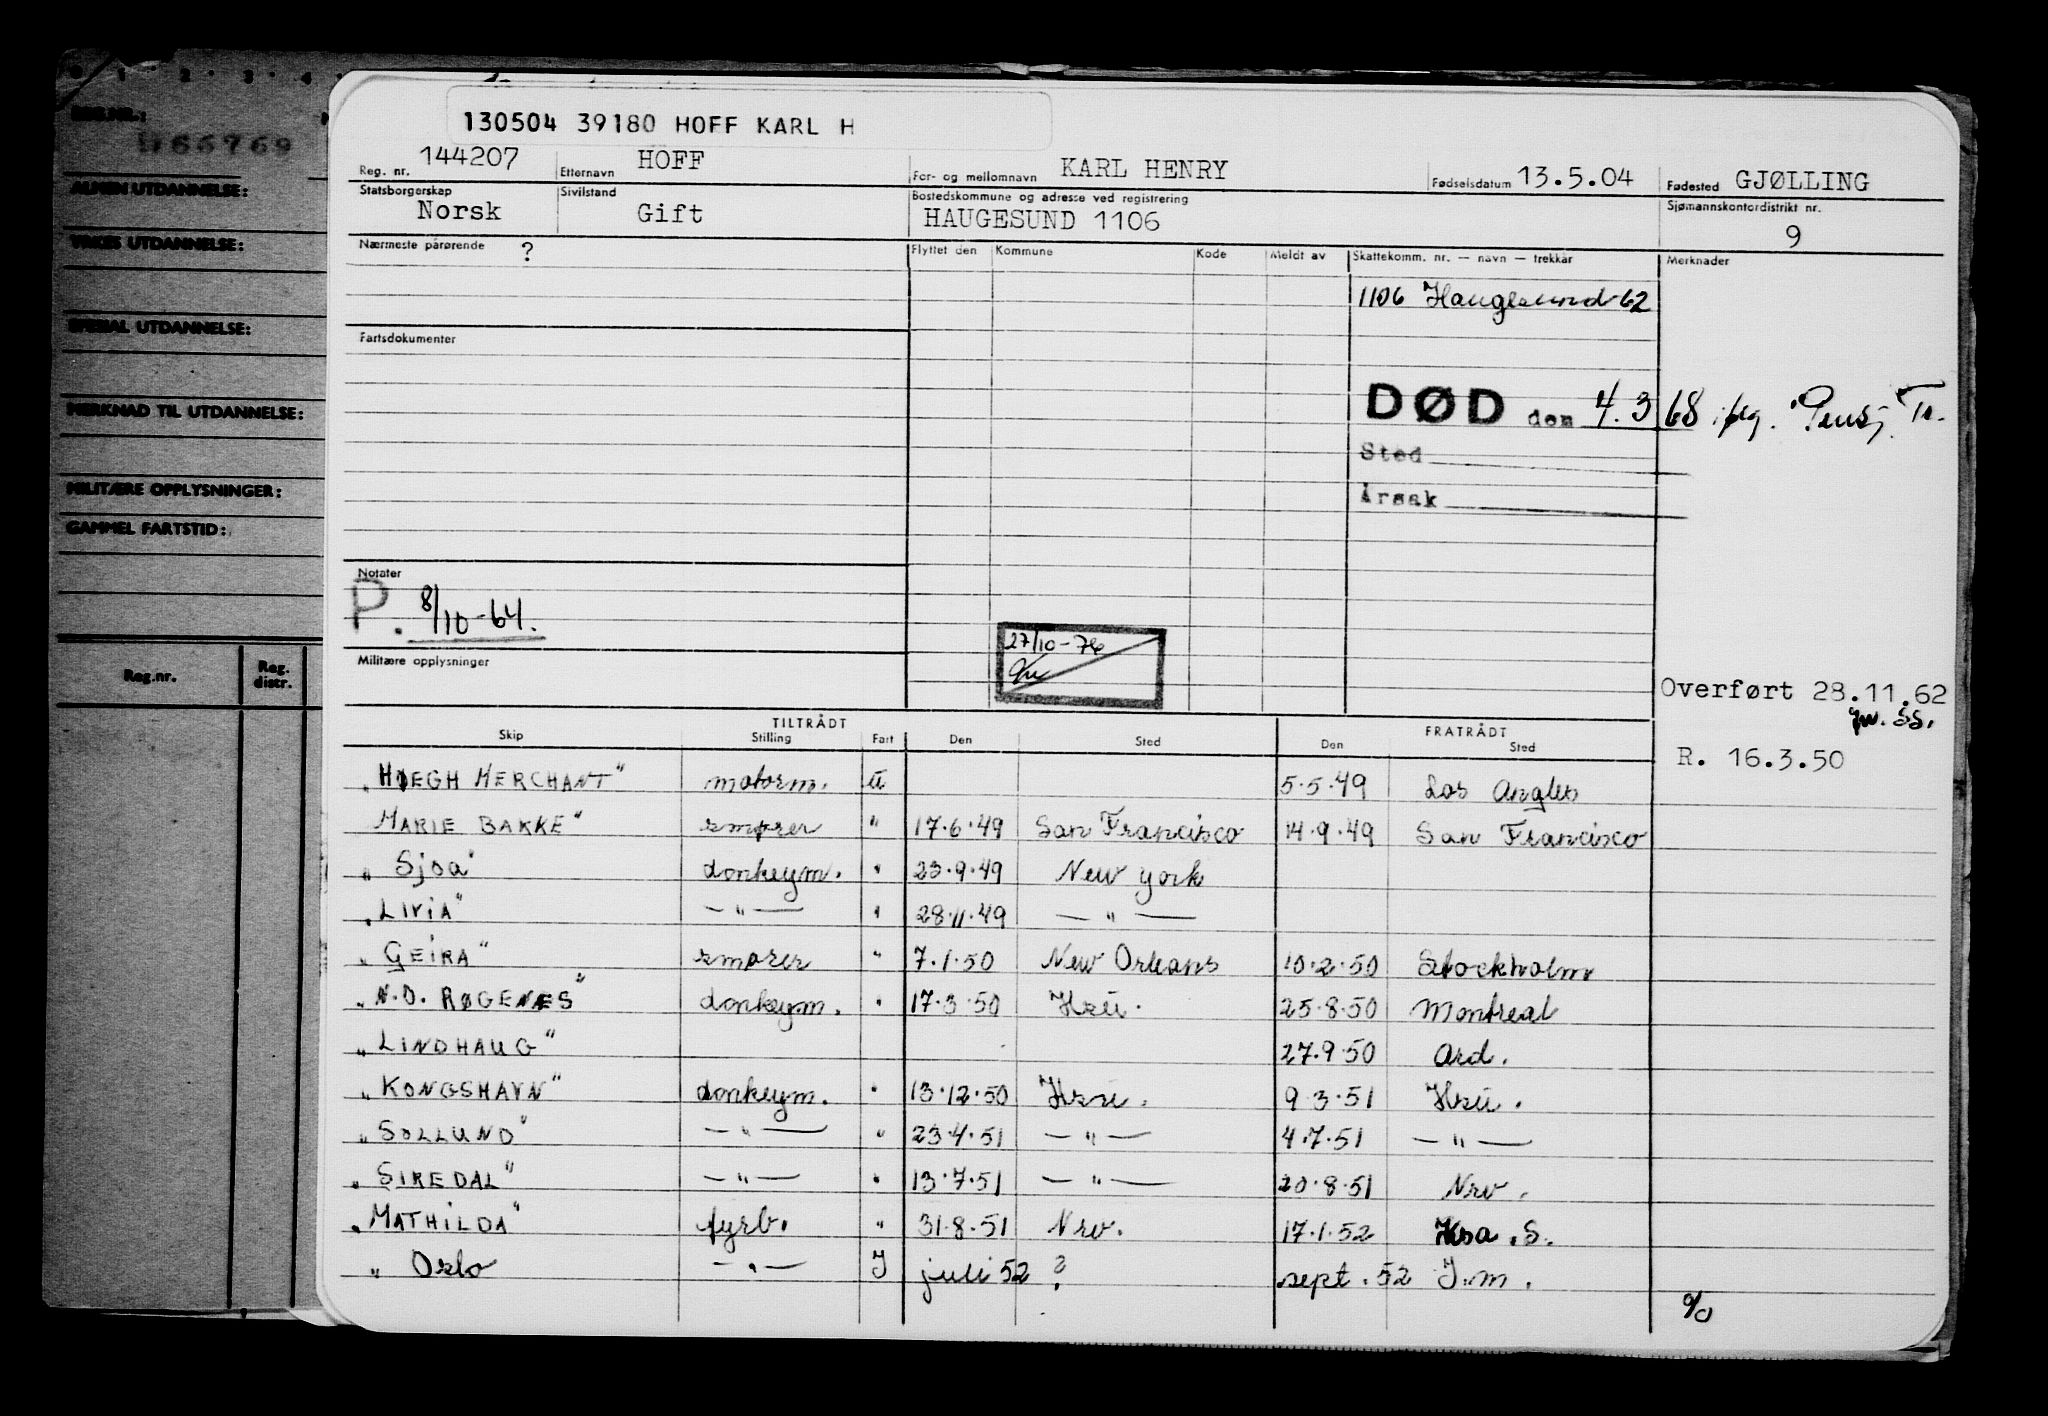 0 1 2 3 4
REG.NR.:
D66769
ALMEN UTDANNELSE:
YRKES UTDANNELSE:
SPESIAL UTDANNELSE:
MERKNAD TIL UTDANNELSE:
MILITÆRE OPPLYSNINGER:
GAMMEL FARTSTID:
Reg.nr. Reg. distr.
130504 39180 HOFF KARL H
Reg. nr. 144207 Etternavn HOFF For- og mellomnavn KARL HENRY Fødselsdatum 13.5.04 Fødested GJØLLING
Statsborgerskap Norsk Sivilstand Gift Bostedskommune og adresse ved registrering HAUGESUND 1106 Sjømannskontordistrikt nr. 9
Nærmeste pårørende ? Flyttet den Kommune Kode Meldt av Skattekomm. nr. — navn — trekkår Merknader
1106 Haugesund 62
Fartsdokumenter
DØD den 4.3 68 iflg. Pensj. Tr.
Sted
Årsak
Notater
P. 8/10-64.
27/10-76
Militære opplysninger
Overført 28.11.62
R. 16.3.50
TILTRÅDT FRATRÅDT
Skip Stilling Fart Den Sted Den Sted
"HØEGH MERCHANT" motorm. u 5.5.49 Los Angles
MARIE BAKKE" smører " 17.6.49 San Francisco 14.9.49 San Francisco
" Sjoa" donkeym. " 23.9.49 New York
"LIVIA" —"— " 28.11.49 —"—
"GEIRA" smører " 7.1.50 New Orleans 10.2.50 Stockholm
"N.O. RØGENÆS" donkeym. " 17.3.50 Hsu. 25.8.50 Montreal
"LINDHAUG" 27.9.50 Ard.
"KONGSHAVN" donkeym. " 13.12.50 Hsu. 9.3.51 Hsu.
"SOLLUND" —"— " 23.4.51 —"— 4.7.51 —"—
"SIREDAL" —"— " 13.7.51 —"— 20.8.51 Nrv.
"MATHILDA" fyrb. " 31.8.51 Nrv. 17.1.52 Hsa. S.
" Oslo —"— J juli 52 ? sept. 52 J.m.
%